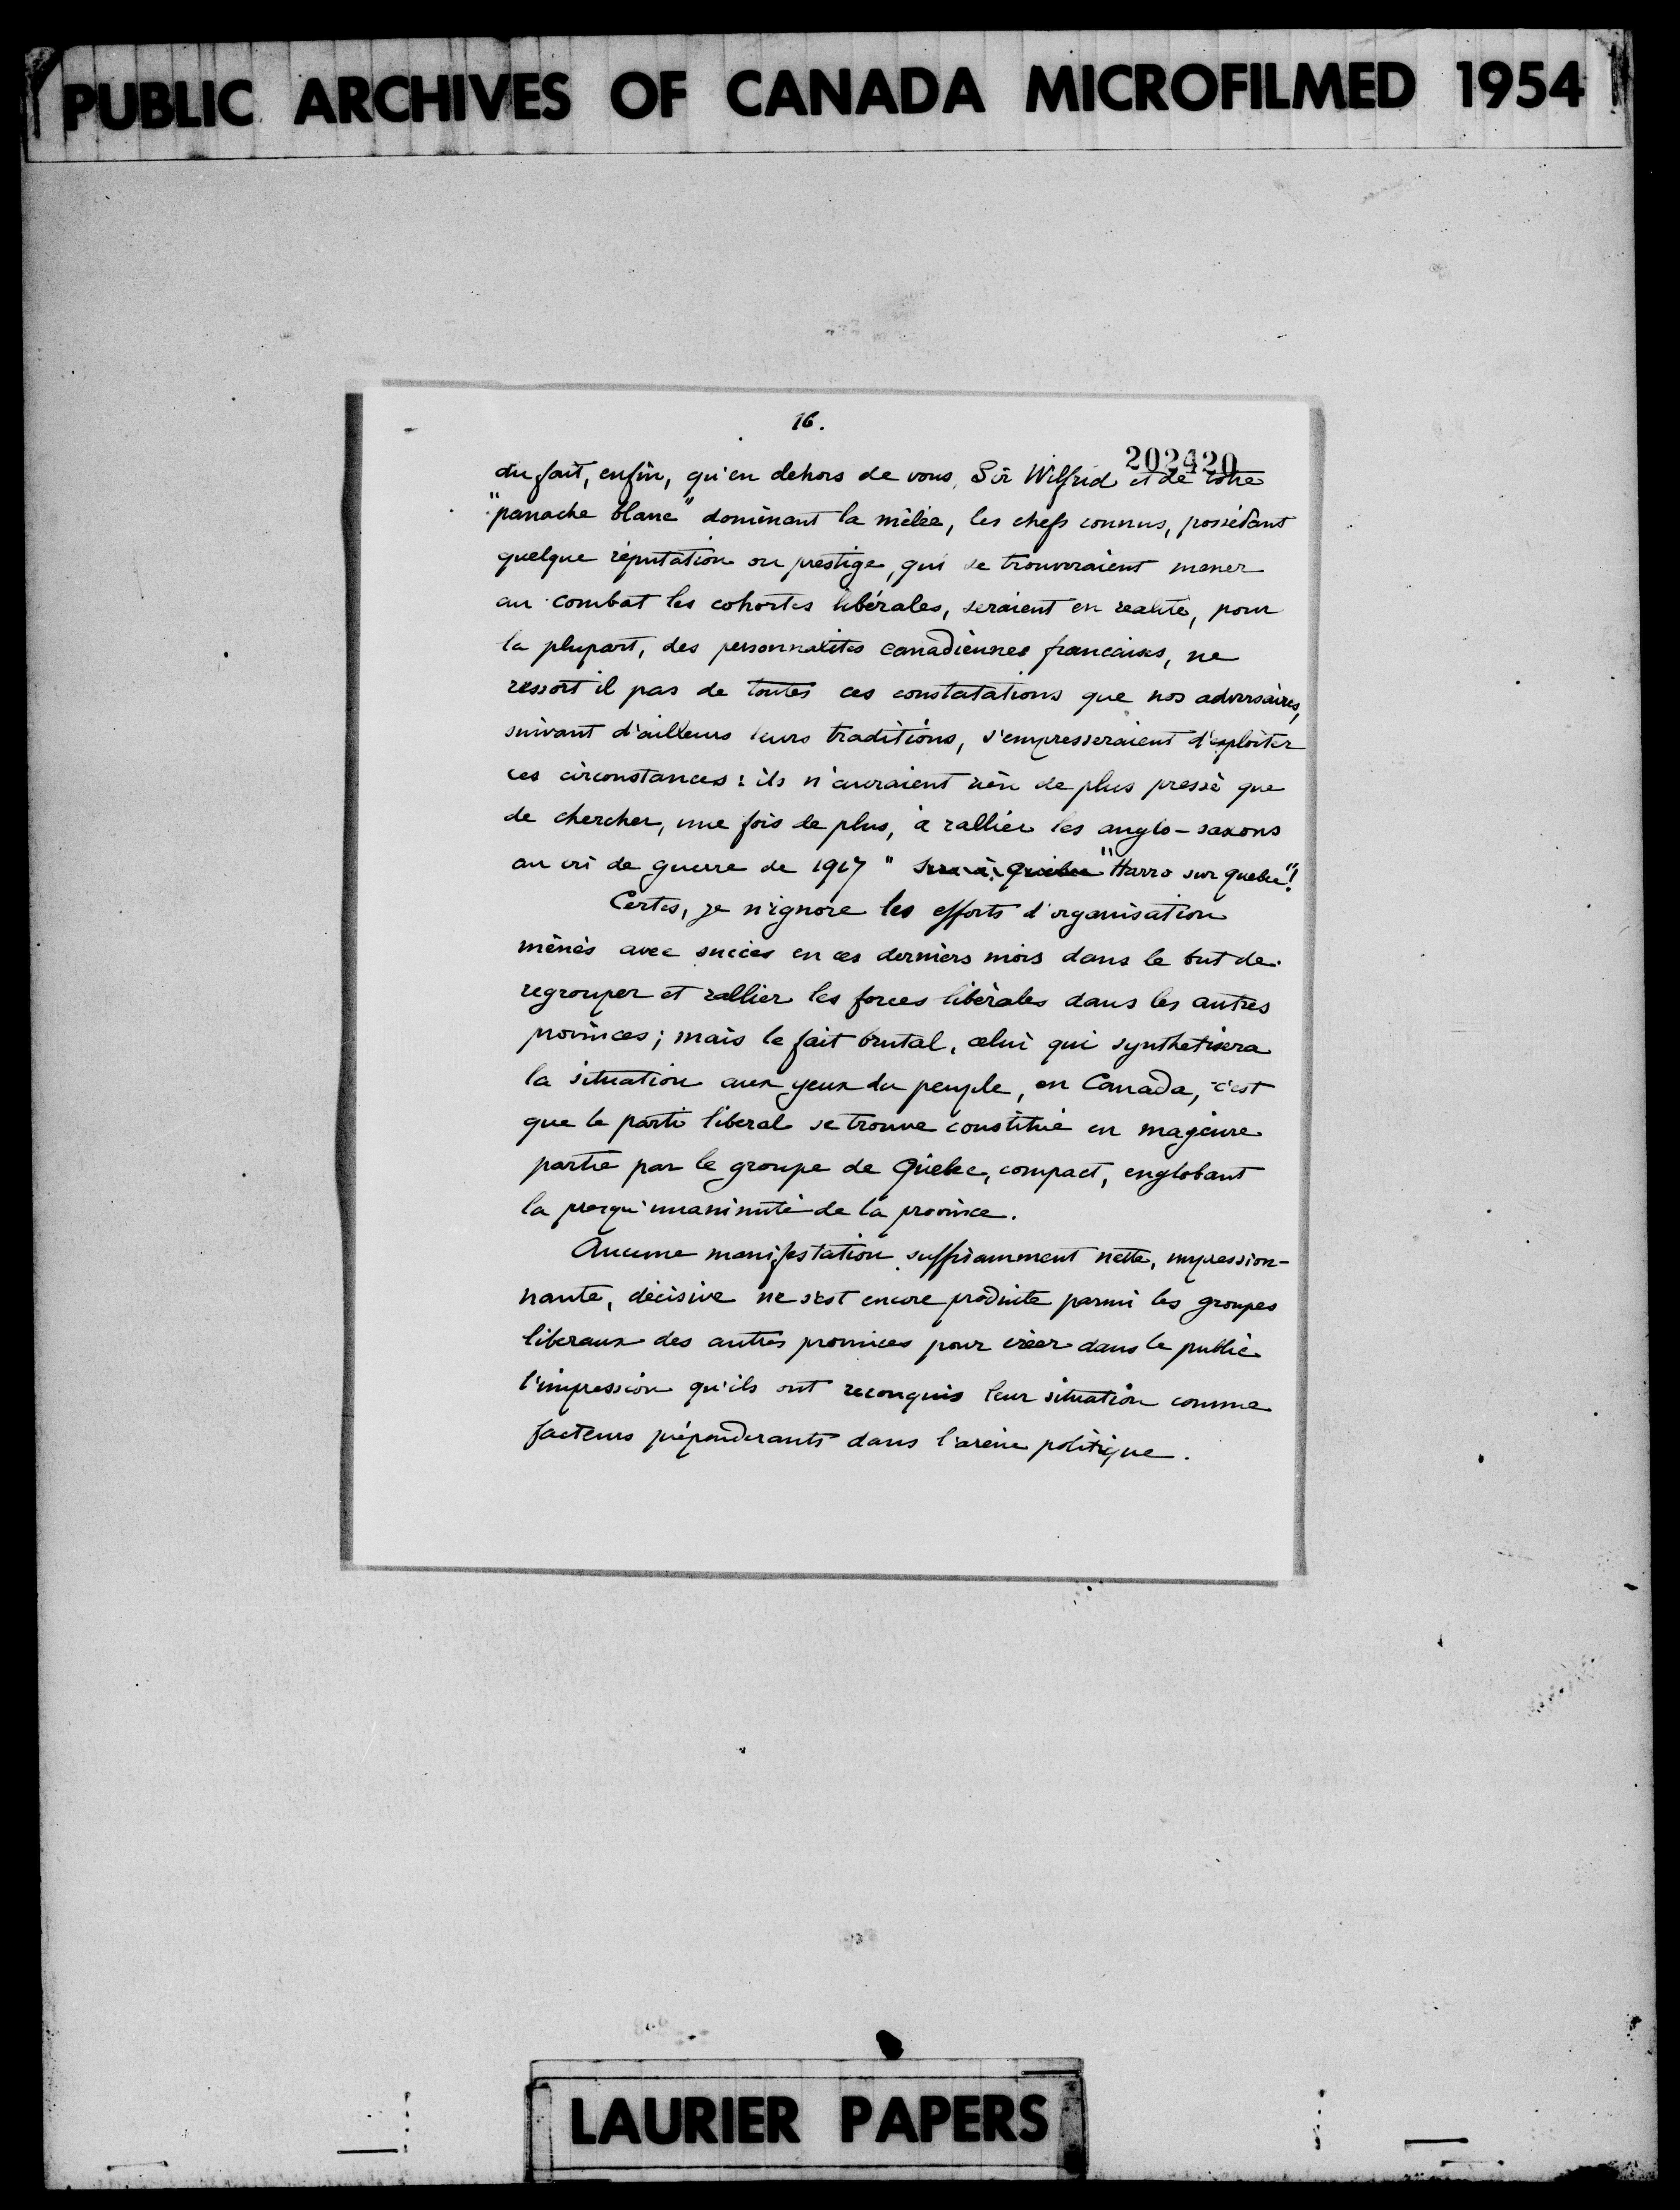 PUBLIC ARCHIVES OF CANADA MICROFILMED 1954
16.
202420
du fait, enfin, qu'en dehors de vous, Sir Wilfrid et de votre
"panache blanc" dominant la mêlée, les chefs connus, possédant
quelque réputation ou prestige, qui se trouveraient mener
au combat les cohortes libérales, seraient en realité, pour
la plupart, des personnalités canadiennes francaises, ne
ressort il pas de toutes ces constatations que nos adversaires,
suivant d'ailleurs leurs traditions, s'empresseraient d'exploiter
ces circonstances: ils n'auraient rien de plus pressé que
de chercher, une fois de plus, à rallier les anglo-saxons
au cri de guerre de 1917 " "Harro sur quebec"!
Certes, je n'ignore les efforts d'organisation
ménés avec succès en ces derniers mois dans le but de
regrouper et rallier les forces libérales dans les autres
provinces; mais le fait brutal, celui qui synthetisera
la situation aux yeux du peuple, en Canada, c'est
que le parti liberal se trouve constitué en mageure
partie par le groupe de Québec, compact, englobant
la presqu'unanimité de la province.
Aucune manifestation suffisamment nette, impression-
nante, décisive ne s'est encore produite parmi les groupes
liberaux des autres provinces pour créer dans le public
l'impression qu'ils ont reconquis leur situation comme
facteurs prépondérants dans l'arène politique.
LAURIER PAPERS